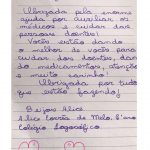 Obrigada pela enorme
ajuda por auxiliar os
médicos e cuidar das
pessoas doentes!
Vocês estão dando
o melhor de vocês para
cuidar dos doentes, dan
do medicamentos, atenção
e muito carinho!
Obrigada por tudo
que estão fazendo!
Beijos Alice
Alice de Melo 8º ano
Colégio